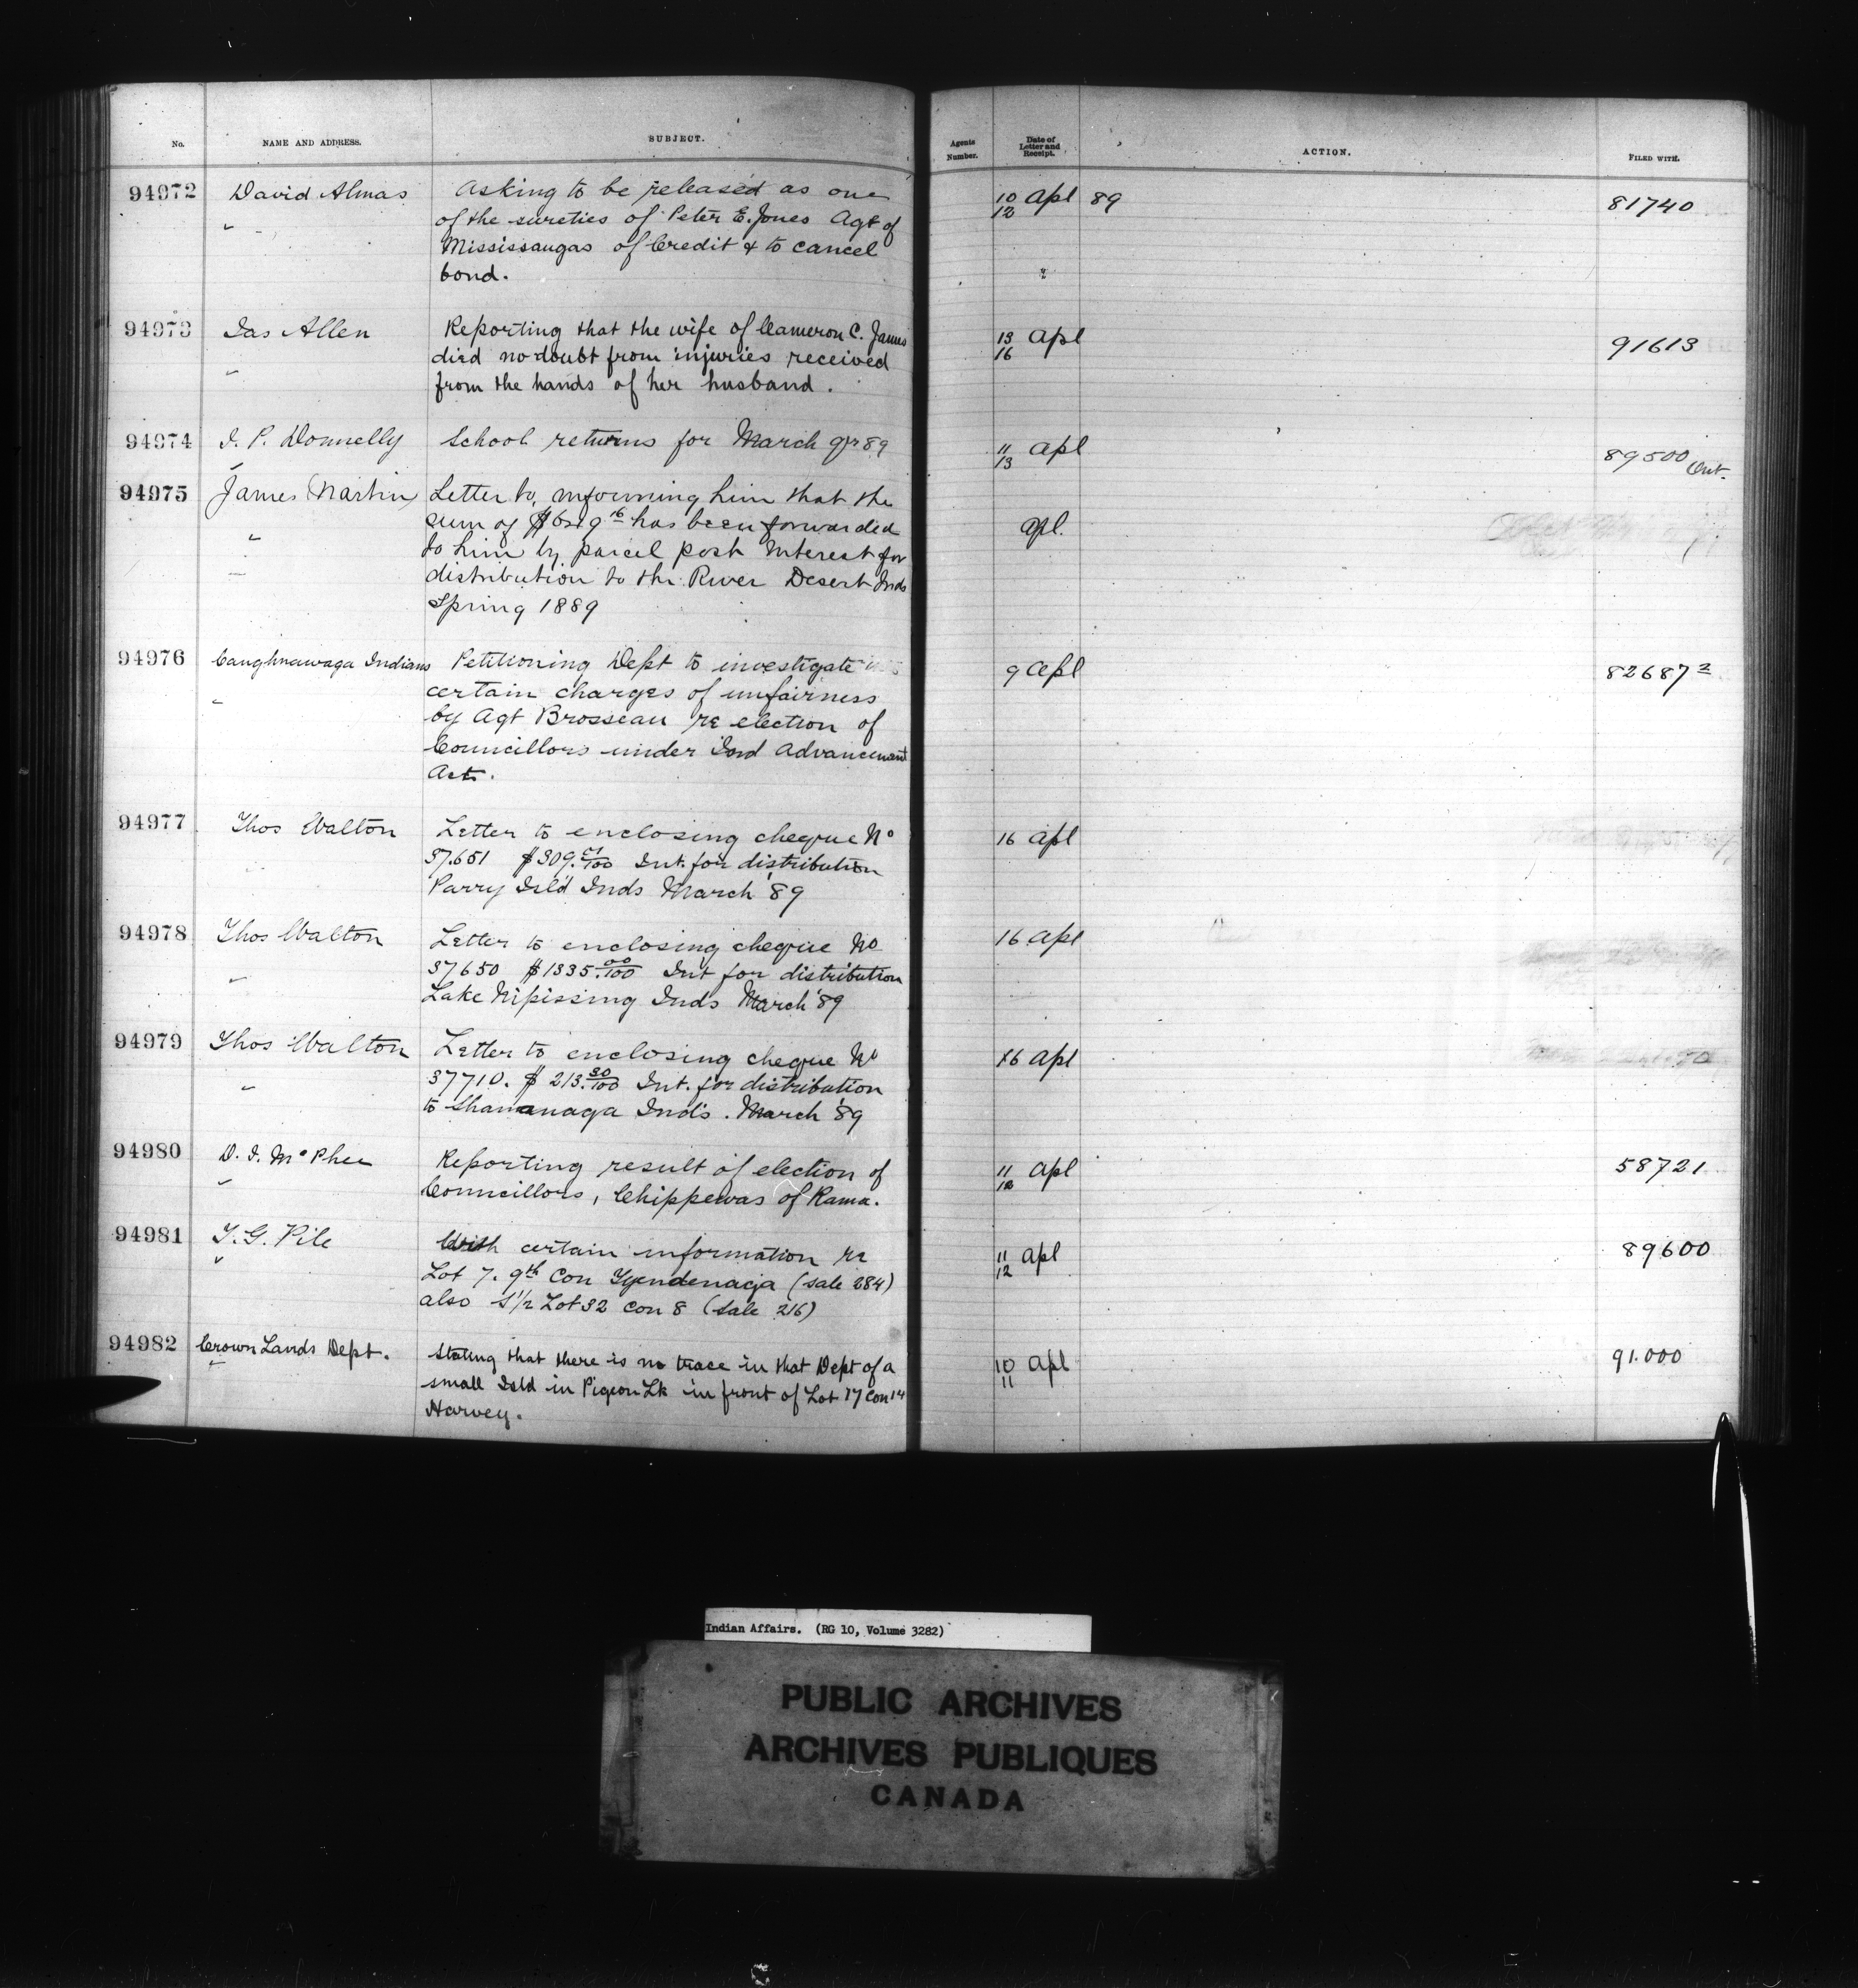 No. NAME AND ADDRESS. SUBJECT. Agents Number. Date of Letter and Receipt. ACTION. FILED WITH.
94972 David Almas Asking to be released as one 10/12 Apl 89 81740
" of the sureties of Peter E. Jones Agt of
Mississaugas of Credit & to cancel
bond. "
94973 Jas Allen Reporting that the wife of Cameron C. James 13/16 Apl 91613
" died no doubt from injuries received
from the hands of her husband.
94974 J. P. Donnelly School returns for March qr 89 11/13 Apl 89500 Ont.
94975 James Martin Letter to, informing him that the
sum of has been forwarded Apl.
" to him by parcel post Interest for
distribution to the River Desert Inds
Spring 1889
94976 Caughnawaga Indians Petitioning Dept to investigate 9 Apl 82687 2
" certain charges of unfairness
by Agt Brosseau re election of
Councillors under Ind Advancement
Act.
94977 Thos Walton Letter to enclosing cheque No 16 Apl
37.651 $309. 01/100 Int. for distribution
Parry Isld Inds March '89
94978 Thos Walton Letter to enclosing cheque No 16 Apl
" 37650 $1335. 00/100 Int for distribution
Lake Nipissing Inds March '89
94979 Thos Walton Letter to enclosing cheque No 16 Apl
" 37710. $213. 30/100 Int. for distribution
to Shawanaga Inds. March '89
94980 D. J. McPhee Reporting result of election of 11/12 Apl 58721
" Councillors, Chippewas of Rama.
94981 T. G. Pile With certain information re 11/12 Apl 89600
" Lot 7. 9th Con Tyendenaga (sale 284)
also S 1/2 Lot 32 Con 8 (sale 216)
94982 Crown Lands Dept. Stating that there is no trace in that Dept of a 10/11 Apl 91.000
" small Isld in Pigeon Lk in front of Lot 17 Con 14
Harvey.
Indian Affairs. (RG 10, Volume 3282)
PUBLIC ARCHIVES
ARCHIVES PUBLIQUES
CANADA